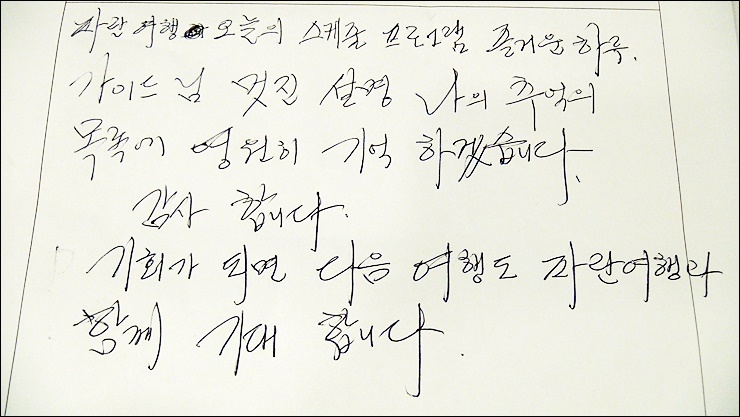 파란 여행 오늘의 스케줄 프로그램 즐거운 하루.
가이드님 멋진 설명 나의 추억의
목록에 영원히 기억 하겠습니다.
감사 합니다.
기회가 되면 다음 여행도 파란여행과
함께 기대 합니다.